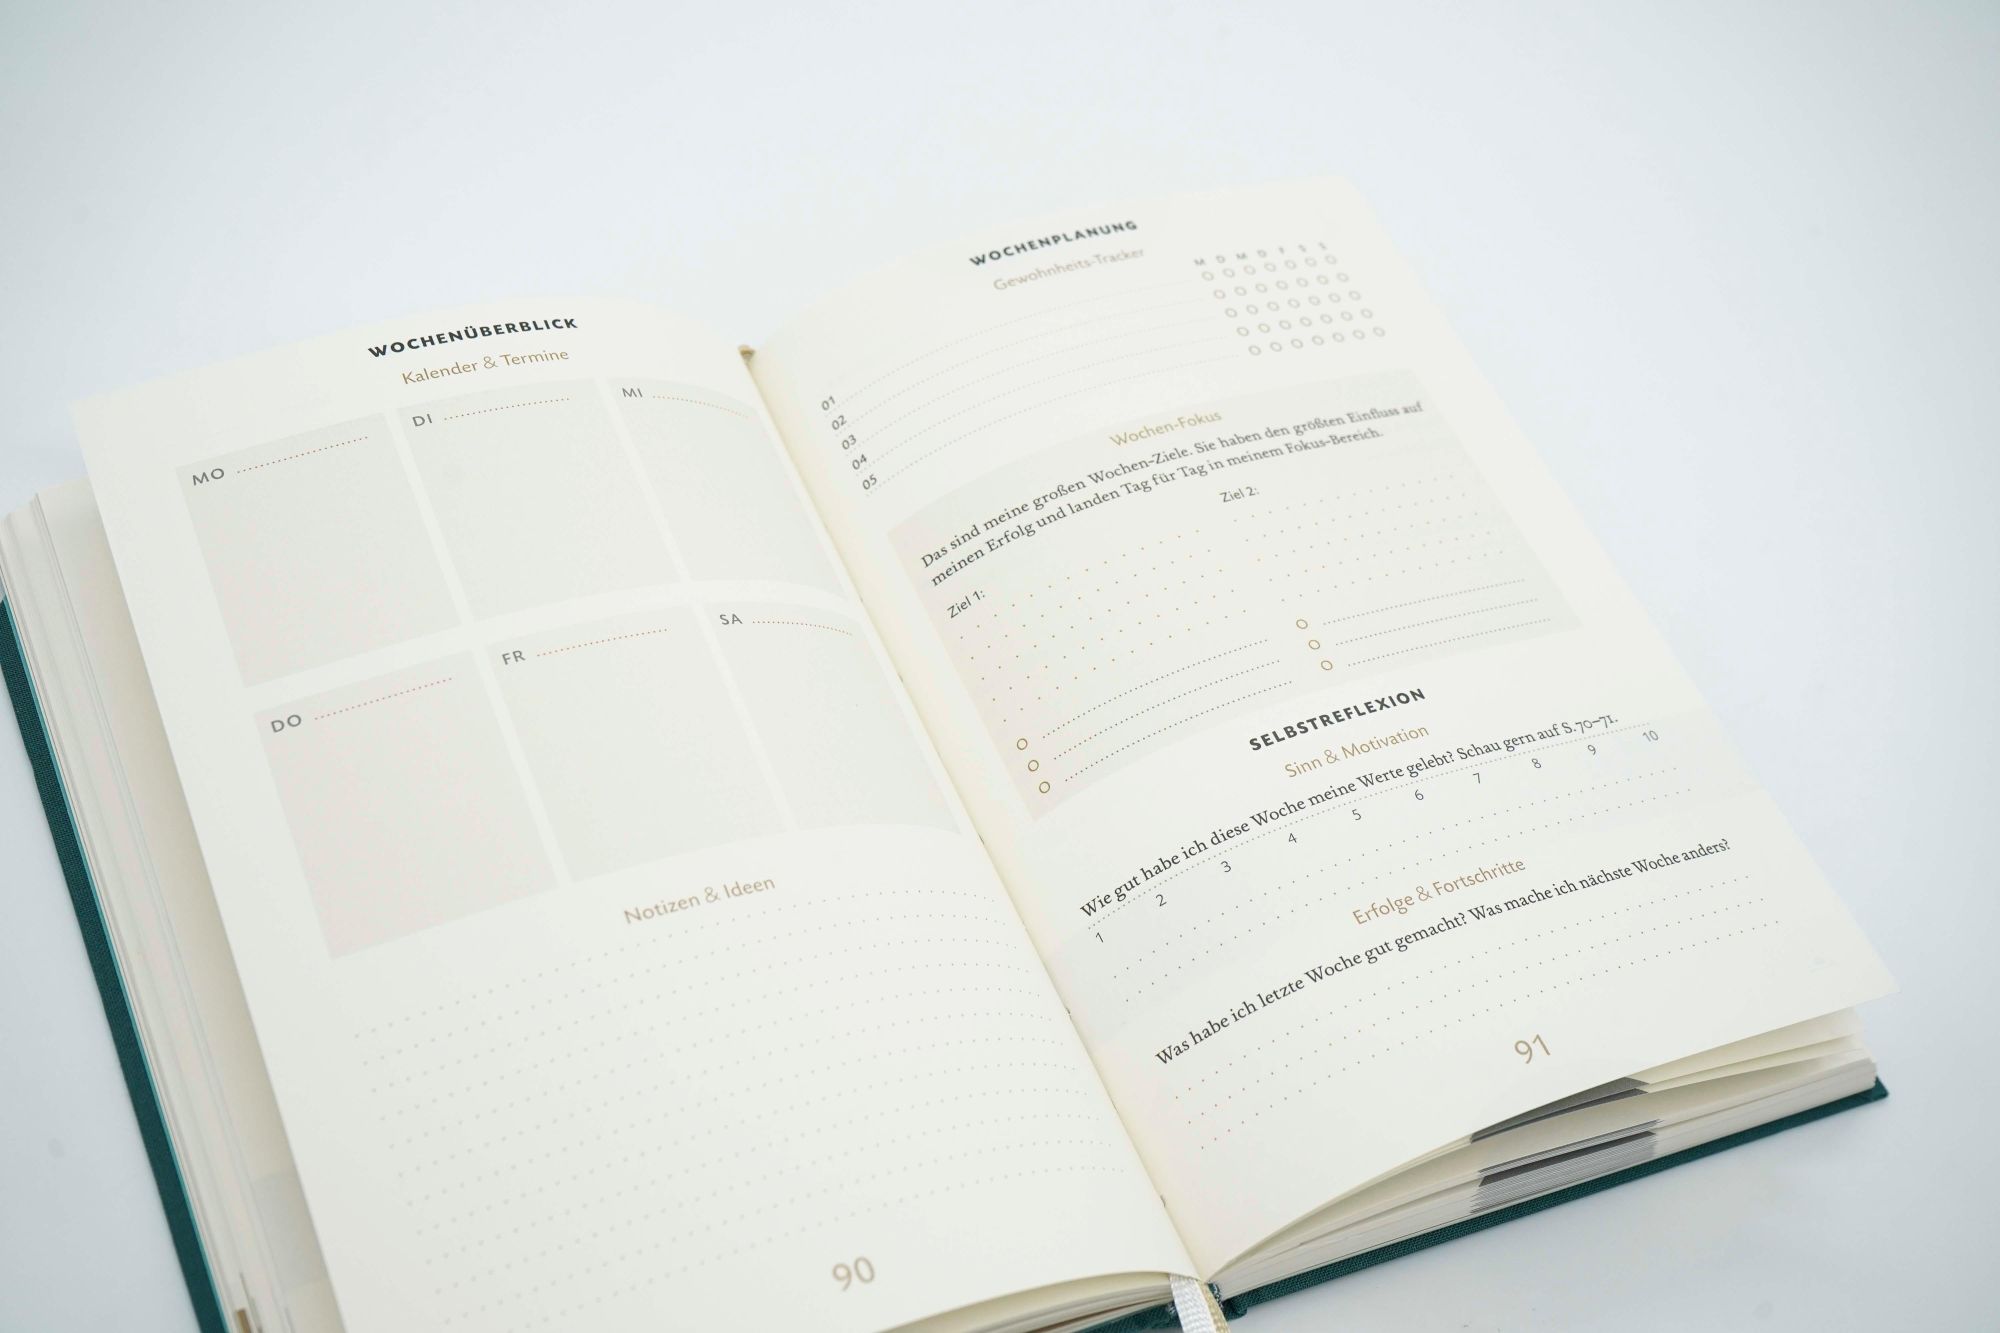 WOCHENÜBERBLICK
Kalender & Termine
MO
DI
MI
DO
FR
SA
Notizen & Ideen
90
WOCHENPLANUNG
Gewohnheits-Tracker
M D M D F S S
01
02
03
04
05
Wochen-Fokus
Das sind meine großen Wochen-Ziele. Sie haben den größten Einfluss auf
meinen Erfolg und landen Tag für Tag in meinem Fokus-Bereich.
Ziel 1:
Ziel 2:
SELBSTREFLEXION
Sinn & Motivation
Wie gut habe ich diese Woche meine Werte gelebt? Schau gern auf S. 70–71.
1 2 3 4 5 6 7 8 9 10
Erfolge & Fortschritte
Was habe ich letzte Woche gut gemacht? Was mache ich nächste Woche anders?
91